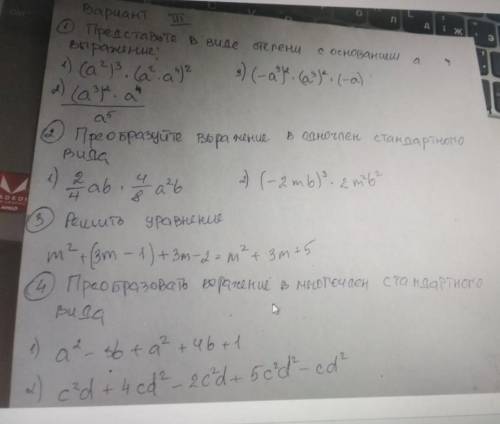 Вариант III
① Представьте в виде степени с основанием a
выражение:
1) (a²)³ · (a² · a⁴)² 3) (-a³)² · (a³)² · (-a)
2) (a³)² · a⁴ / a⁵
② Преобразуйте выражение в одночлен стандартного
вида
1) 2/4 ab · 4/8 a²b 2) (-2mb)³ · 2m²b²
③ Решить уравнение
m² + (3m - 1) + 3m - 2 = m² + 3m + 5
④ Преобразовать выражение в многочлен стандартного
вида
1) a² - 3b + a² + 4b + 1
2) c²d + 4cd² - 2c²d + 5c²d² - cd²
AMD